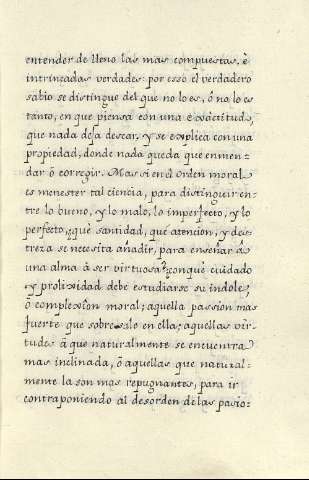 entender de lleno las mas compuestas, è
intrincadas verdades: por esso el verdadero
sabio se distingue del que no lo es, ó no lo es
tanto, en que piensa con una exâctitud,
que nada deja desear, y se explica con una
propiedad, donde nada queda que enmen-
dar ô corregir. Mas si en el orden moral
es menester tal ciencia, para distinguir en-
tre lo bueno, y lo malo, lo imperfecto, y lo
perfecto, què santidad, què atencion, y des-
treza se necesita añadir, para enseñar â
una alma â ser virtuosa? con què cuidado
y prolixidad debe estudiarse su indole,
ô complexîon moral; aquella passion mas
fuerte que sobresale en ella; aquellas vir-
tudes â que naturalmente se encuentra
mas inclinada, ô aquellas que natural-
mente la son mas repugnantes, para ir
contraponiendo al desorden de las pasio-